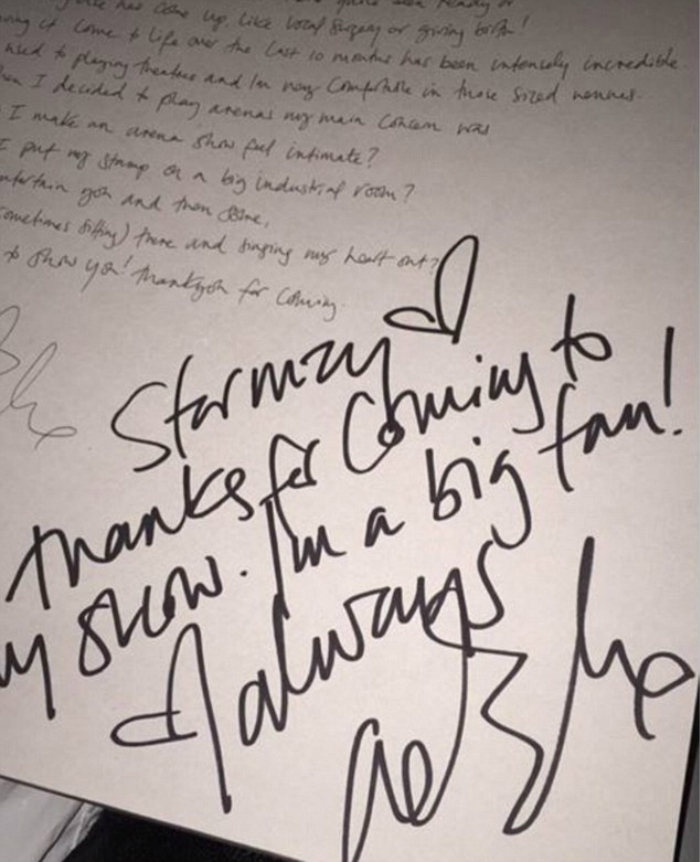 has come up, like vocal surgery or giving birth!
it come to life over the last 10 months has been intensely incredible.
used to playing theatres and Im very Comfortable in those sized venues.
I decided to play arenas my main concern was
I make an arena show feel intimate?
I put my stamp on a big industrial room?
you and then some,
sometimes sitting) there and singing my heart out?
to show you! thankyou for coming.
Stormzy
thanks for Coming to
my show. I'm a big fan!
always
Adele